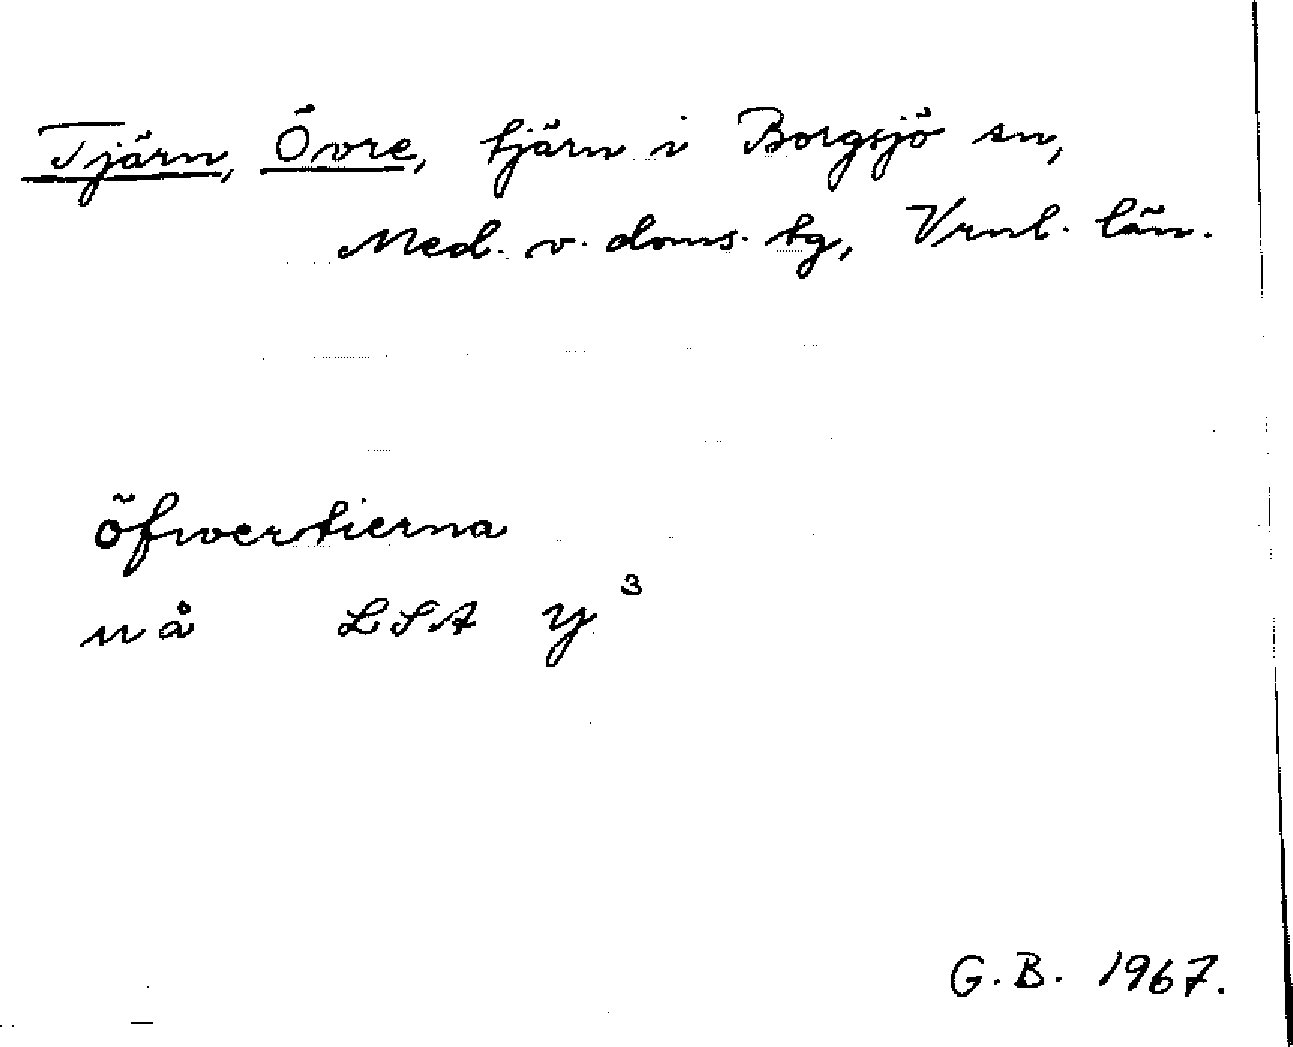 Tjärn, Övre, tjärn i Borgsjö sn,
Med. v. doms. tg, Vrnl. län.
öfwertierna
uå LSA Y³
G.B. 1967.